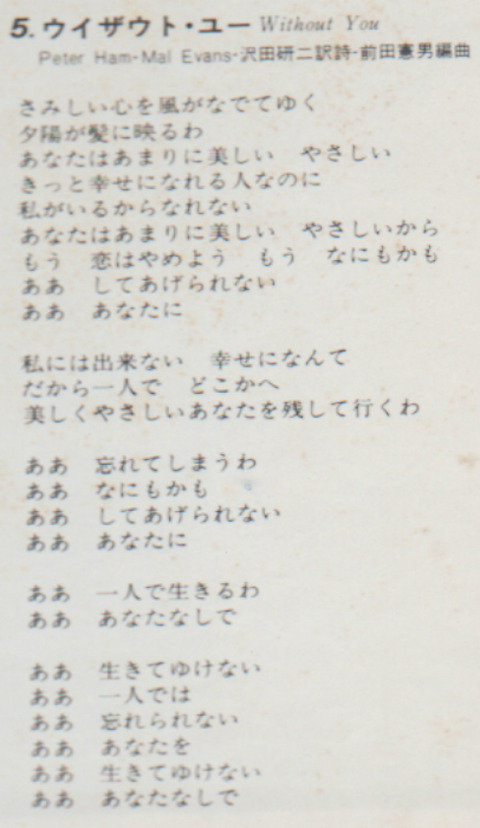 5. ウイザウト・ユー Without You
Peter Ham-Mal Evans-沢田研二訳詩-前田憲男編曲
さみしい心を風がなでてゆく
夕陽が髪に映るわ
あなたはあまりに美しい　やさしい
きっと幸せになれる人なのに
私がいるからなれない
あなたはあまりに美しい　やさしいから
もう　恋はやめよう　もう　なにもかも
ああ　してあげられない
ああ　あなたに
私には出来ない　幸せになんて
だから一人で　どこかへ
美しくやさしいあなたを残して行くわ
ああ　忘れてしまうわ
ああ　なにもかも
ああ　してあげられない
ああ　あなたに
ああ　一人で生きるわ
ああ　あなたなしで
ああ　生きてゆけない
ああ　一人では
ああ　忘れられない
ああ　あなたを
ああ　生きてゆけない
ああ　あなたなしで